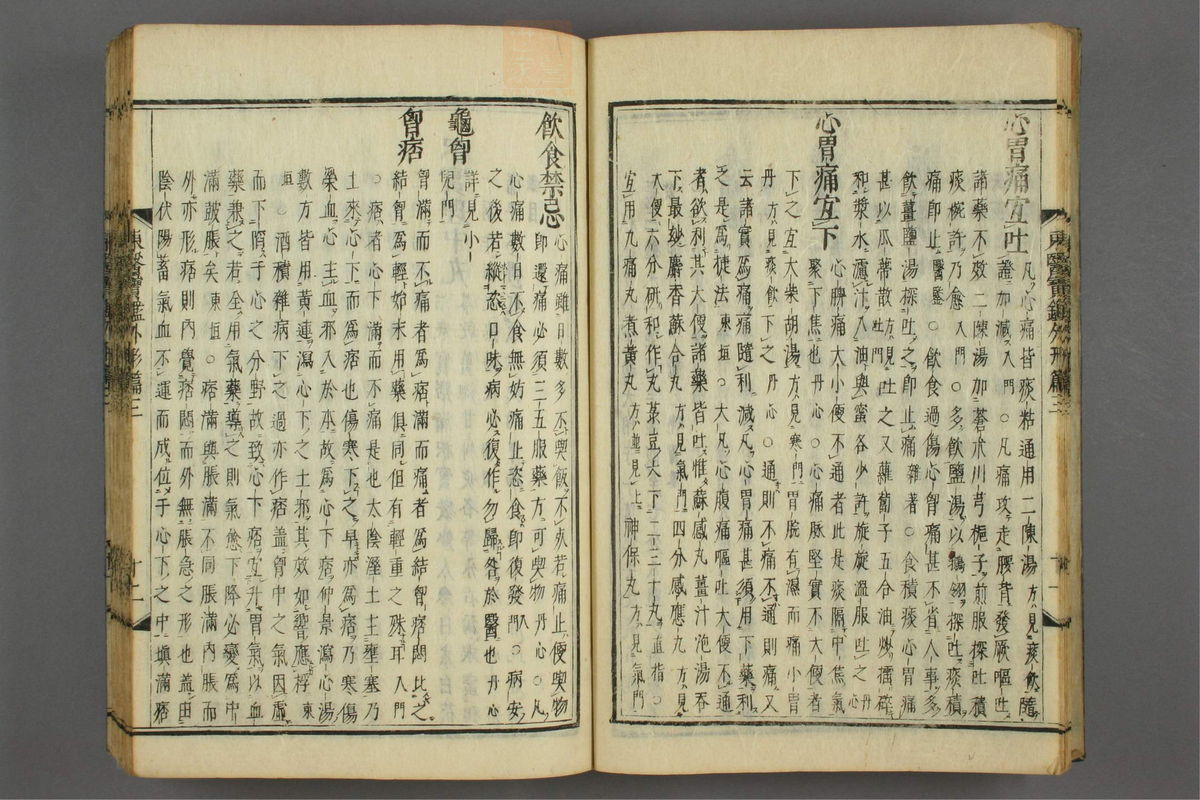 心胃痛宜吐 凡心痛皆痰粘通用二陳湯方見痰飲隨
證加減入門○凡痛攻走腰背發厥嘔吐
諸藥不效二陳湯加蒼朮川芎梔子煎服探吐積
痰椀許乃愈入門○多飲鹽湯以鵝翎探吐痰積
痛即止醫鑒○飲食過傷心胸痛甚不省人事多
飲薑鹽湯探吐之即止痛雜著○食積痰心胃痛
甚以瓜蔕散方見吐門吐之又蘿蔔子五合油煠擂碎
和漿水濾汁入油與蜜各少許旋旋溫服吐之丹心
心胃痛宜下 心脾痛大小便不通者此是痰隔中焦氣
聚下焦也丹心○心痛脉堅實不大便者
下之宜大柴胡湯方見寒門胃脘有濕而痛小胃
丹方見痰飲下之丹心○通則不痛不通則痛又
云諸實爲痛痛隨利減凡心胃痛甚須用下藥利
之是爲捷法東垣○大凡心腹痛嘔吐大便不通
者欲利其大便諸藥皆吐惟蘇感丸薑汁泡湯吞
下最妙麝香蘇合丸方見氣門四分感應丸方見
大便六分研和作丸菉豆大下二三十丸直指○
宜用九痛丸煮黃丸方並見上神保丸方見氣門
東醫寶鑑外形篇三
飲食禁忌 心痛雖日數多不喫飮不死若痛止便喫物
即還痛必須三五服藥方可喫物丹心○凡
心痛數日不食無妨痛止恣食即復發入門○病安
之後若縱恣口味病必復作勿歸咎於醫也丹心
龜胸 詳見小兒門
胸痞 胸滿而不痛者爲痞滿而痛者爲結胸痞悶比之
結胸爲輕始末用藥俱同但有輕重之殊耳入門
○痞者心下滿而不痛是也太陰濕土主壅塞乃
土來心下而爲痞也傷寒下之早亦爲痞乃寒傷
榮血心主血邪入於本故爲心下痞仲景瀉心湯
數方皆用黃連瀉心下之土邪其效如響應桴東垣
○酒積雜病下之過亦作痞盖胸中之氣因虛
而下陷于心之分野故致心下痞宜升胃氣以血
藥兼之若全用氣藥導之則氣愈下降必變爲中
滿皷脹矣東垣○痞滿與脹滿不同脹滿內脹而
外亦形痞則內覺痞悶而外無脹急之形也盖由
陰伏陽蓄氣血不運而成位于心下之中塡滿痞
東醫寶鑑外形篇三